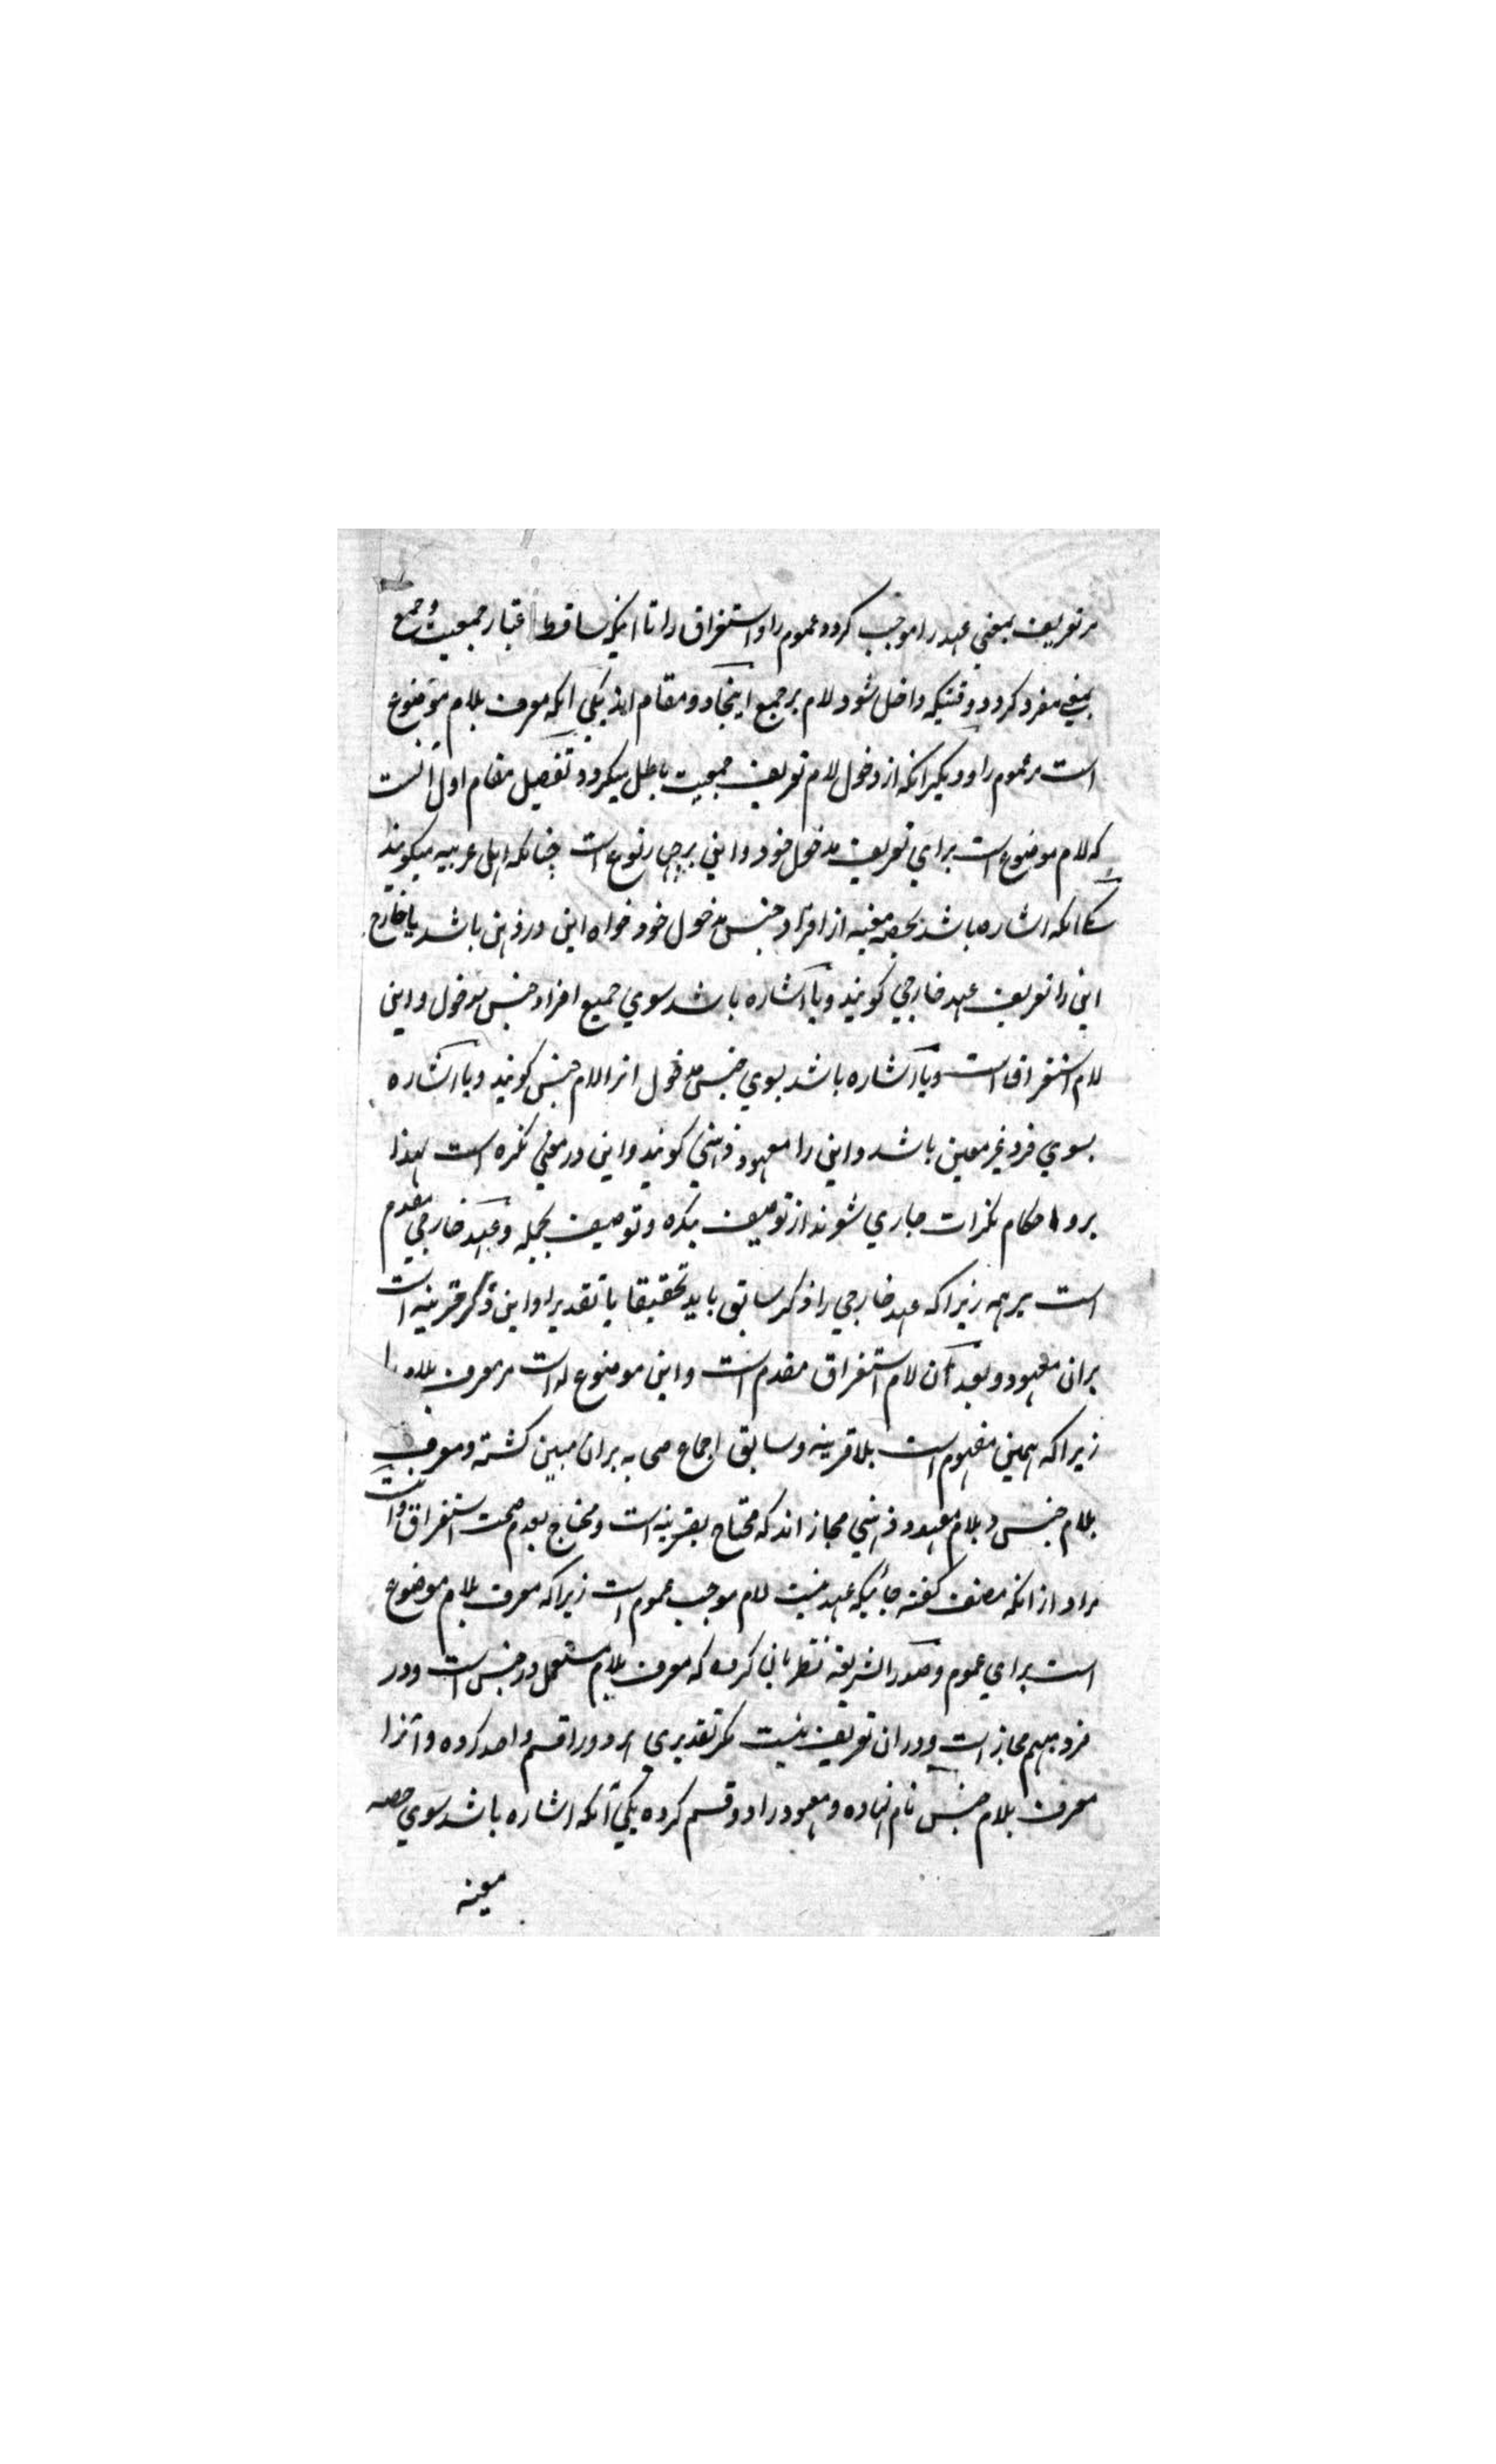 مر تعریف بمعنی عهد را موجب گردد عموم را و استغراق را تا آنکه ساقط اعتبار جمعیت و جمع
بمعنی مفرد گردد وقتیکه داخل شود لام بر جمع اینجا دو مقام اند یکی آنکه معرف بلام موضوع
است مر عموم را و دیگر آنکه از دخول لام تعریف جمعیت باطل میگردد و تفصیل مقام اول آنست
که لام موضوع است برای تعریف مدخول خود و این بر چهار نوع است چنانکه اهل عربیه میگویند
یکی آنکه اشاره باشد بحصه معینه از افراد جنس مدخول خود خواه این در ذهن باشد یا خارج
این را تعریف عهد خارجی گویند و یا اشاره باشد سوی جمیع افراد جنس مدخول و این
لام استغراق است و یا اشاره باشد بسوی جنس مدخول انرا لام جنس گویند و یا اشاره
بسوی فرد غیر معین باشد و این را معهود ذهنی گویند و این در معنی نکره است لهذا
برو احکام نکرات جاری شوند از توصیف بنکره و توصیف بجمله و عهد خارجی مقدم
است بر همه زیرا که عهد خارجی را ذکر سابق باید تحقیقا یا تقدیرا و این ذکر قرینه است
بران معهود و بعد آن لام استغراق مقدم است و این موضوع له است مر معرف بلام را
زیرا که همین مفهوم است بلا قرینه و سابق اجماع صحابه بران مبین گشته و معرف
بلام جنس و بلام معهود ذهنی مجاز اند که محتاج بقرینه است و محتاج بعدم صحت استغراق و اینست
مراد از آنکه مصنف گفته جائیکه عهد نیست لام موجب عموم است زیرا که معرف بلام موضوع
است برای عموم و صدر الشریعه نظر بان کرده که معرف بلام مستعمل در جنس است و در
فرد مبهم مجاز است و دران تعریف نیست مگر تقدیری هر دو را قسم واحد کرده و آنرا
معرف بلام جنس نام نهاده و معهود را دو قسم کرده یکی آنکه اشاره باشد سوی حصه
معینه